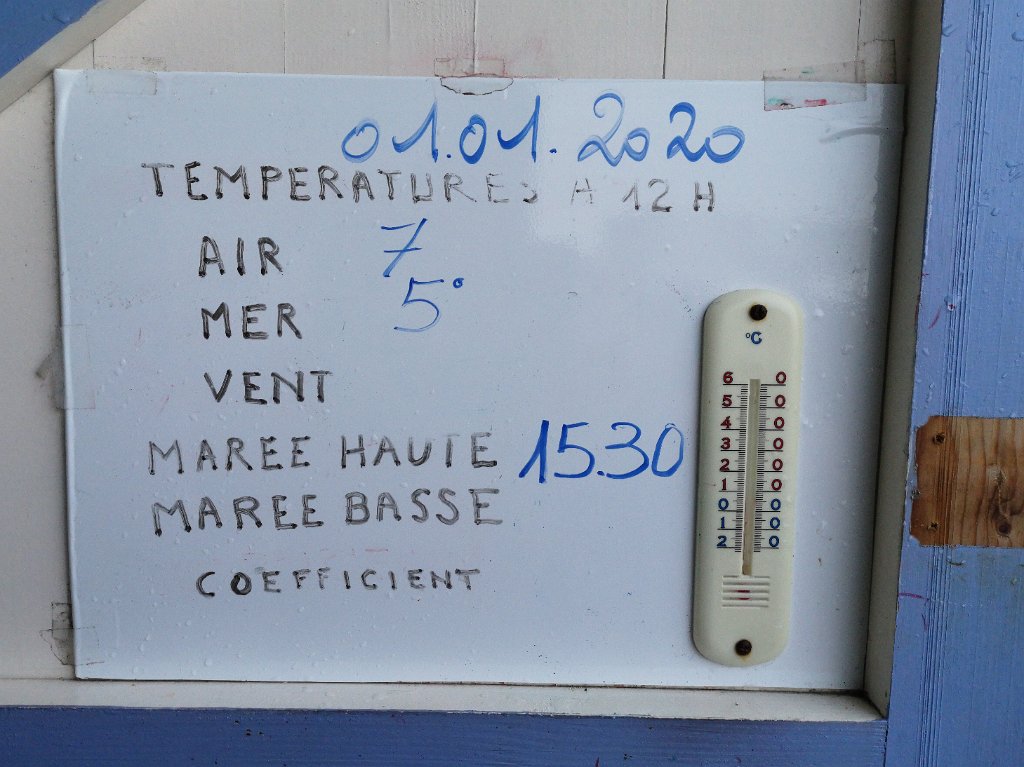 01.01.2020
TEMPERATURES A 12 H
AIR 7
MER 5°
VENT
MAREE HAUTE 15.30
MAREE BASSE
COEFFICIENT
°C
6 0
5 0
4 0
3 0
2 0
1 0
0 0
1 0
2 0